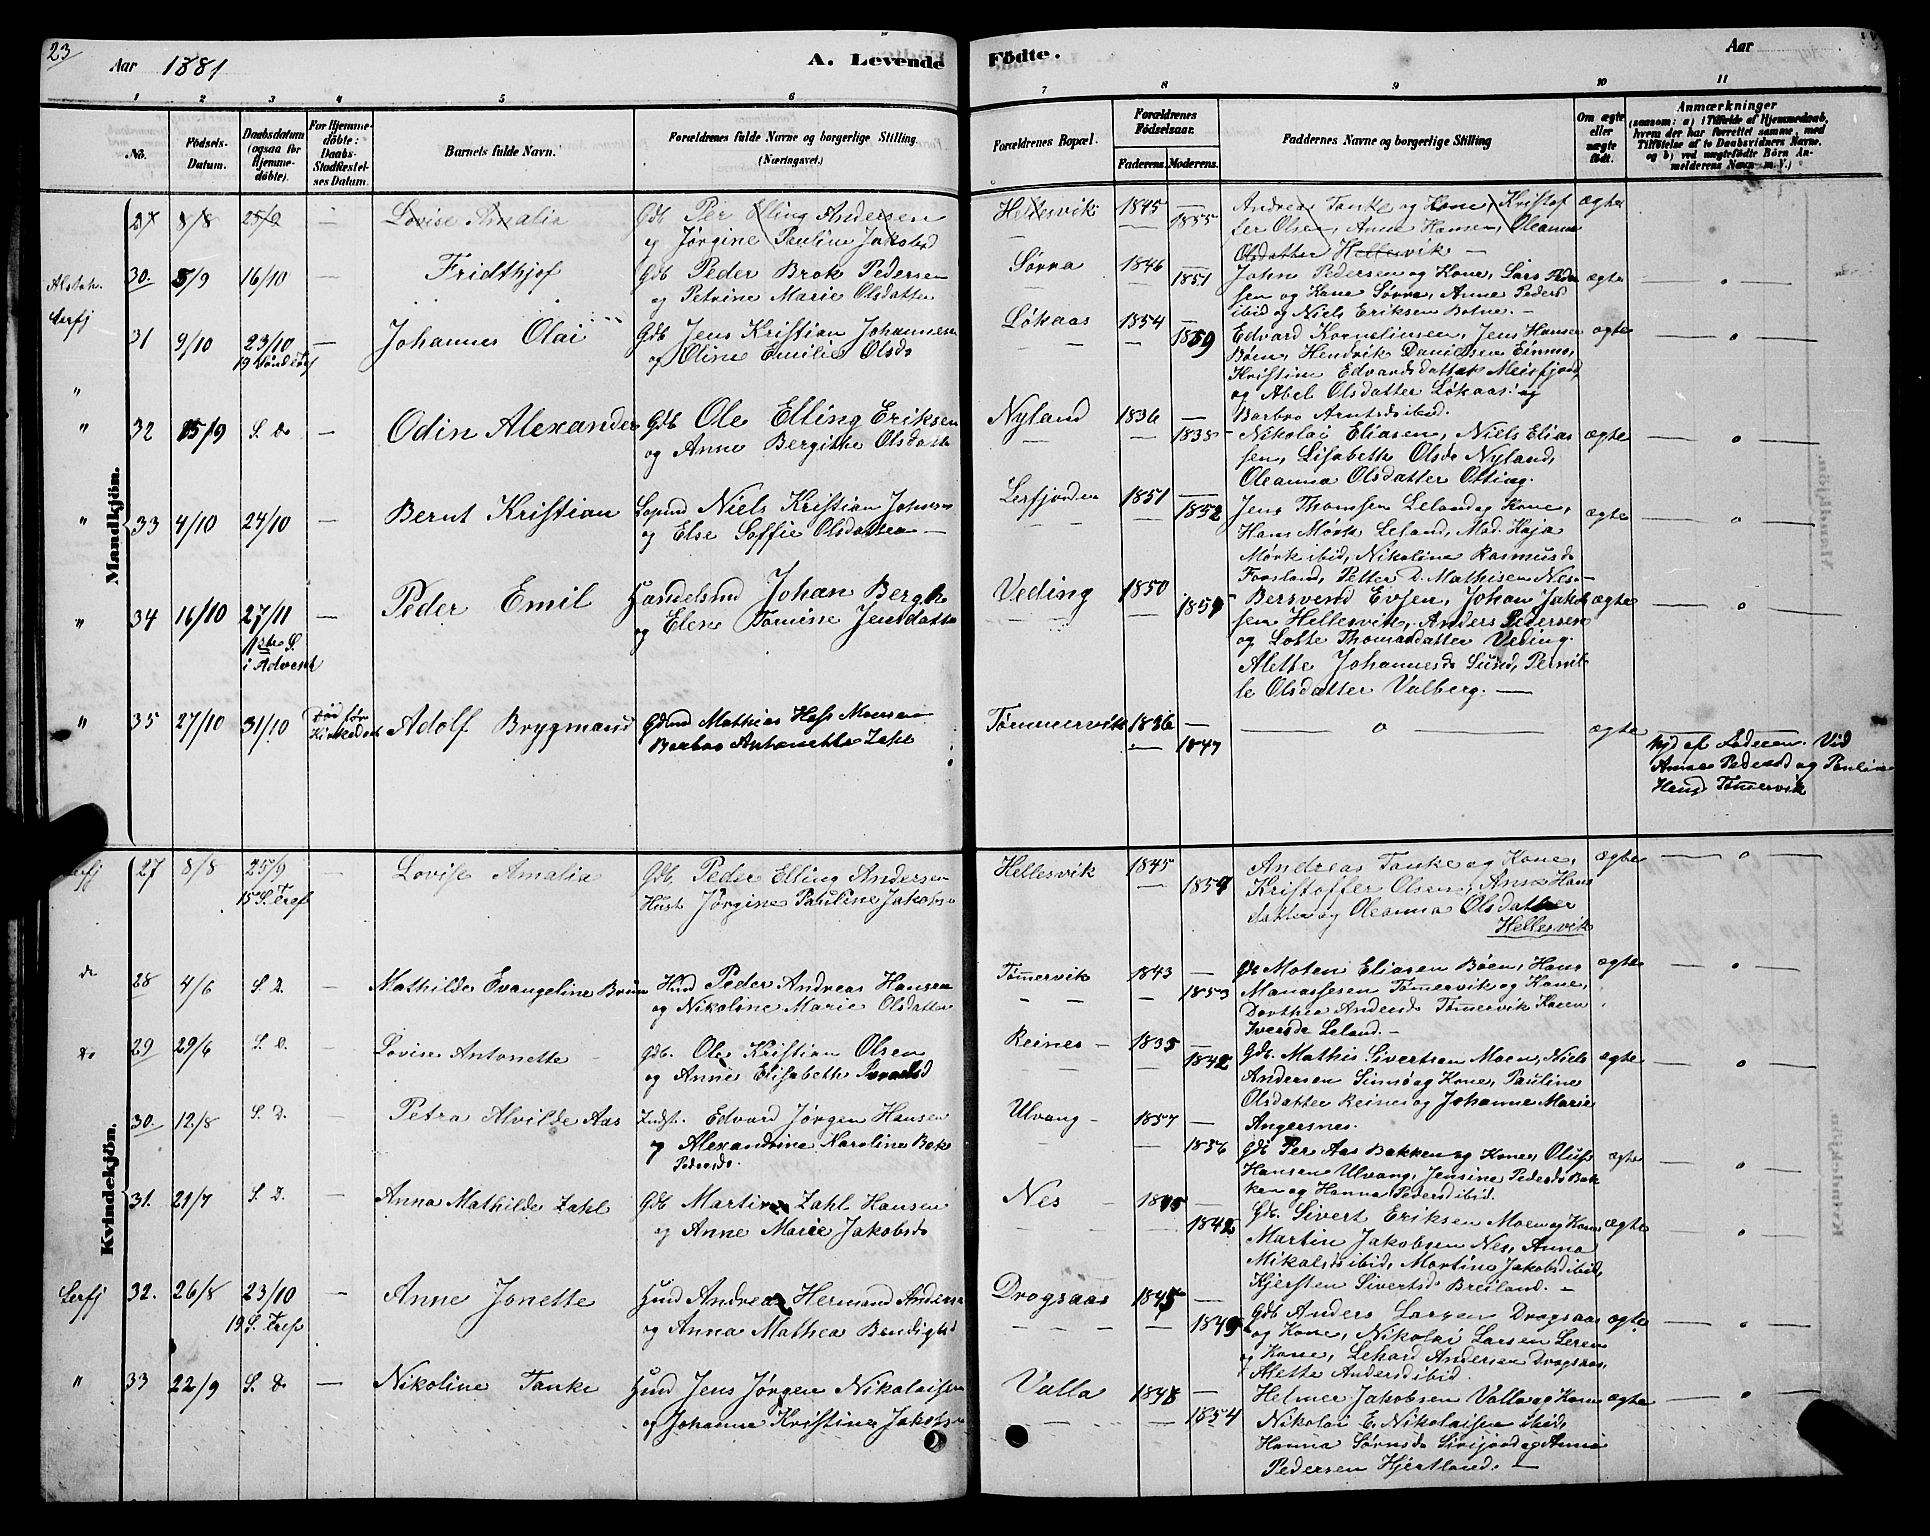 23
Aar 1881
A. Levende Födte.
Aar
1 2 3 4 5 6 7 8 9 10 11
No.
Födsels-Datum.
Daabsdatum (ogsaa for Hjemmedöbte).
For Hjemmedöbte: Daabs-Stadfæstelses Datum.
Barnets fulde Navn.
Forældrenes fulde Navne og borgerlige Stilling. (Næringsvei.)
Forældrenes Bopæl.
Forældrenes Födselsaar.
Faderens. Moderens.
Faddernes Navne og borgerlige Stilling
Om ægte eller uægte födt.
Anmærkninger
(saasom: a) i Tilfælde af Hjemmedaab, hvem der har forrettet samme, med Tilföielse af to Daabsvidners Navne, og b) ved uægtefödte Börn Anmelderens Navn m. V.)
Mandkjön.
27 8/8 25/9 — Lovise Amalia Gdb Per Elling Andersen
og Jørgine Pauline Jakobsd
Hellesvik 1845 — 1855
Andreas Tanke og Kone, Kristof
fer Olsen, Anne Hansen, Oleanna
Olsdatter Hellesvik —
ægte
Alstah.
30. 5/9 16/10 — Fridthjof Gdb Peder Brok Pedersen
og Petrine Marie Olsdatter
Sørra 1846 — 1851
John Pedersen og Kone, Lars Peder
sen og Kone Sørra, Anne Peders
ibid og Niels Eriksen Botne. —
ægte — o —
Lerfj
31 9/10 23/10 — Johannes Olai Gdb Jens Kristian Johannesen
19 Sønd e Tref
og Oline Emilie Olsds
Løkaas 1854 — 1859
Edvard Kornelinsen, Jens Hansen
Bøen, Hendrik Danielsen Einmo,
Kristine Edvardsdatter Meisfjord,
og Abel Olsdatter Løkaas og
Barbro Arntsds ibid.
ægte — o —
" 32 15/9 S. D. — Odin Alexander Gdb Ole Elling Eriksen
og Anne Bergitte Olsdatte
Nyland 1836 — 1835
Nikolai Eliasen, Niels Elias
sen, Lisabeth Olsds Nyland,
Oleanna Olsdatter Otting.
ægte — o —
" 33 4/10 24/10 — Bernt Kristian Niels Kristian Johnsen
og Else Soffie Olsdatter —
Lerfjorden 1851 — 1852
Jens Thomsen Leland og Kone,
Hans Mørk Leland, Mad. Kaja
Mørk ibid, Nikoline Rasmusds
Forsland, Petter D. Mathisen Nes. —
ægte — o —
" 34 16/10 27/11 — Peder Emil Handelsmd Johan Bergh
1ste S. i Advent
og Elen Tomine Jensdatte
Veding 1850 1857
Bersvend Evjen, Johan Jakob
sen Hellesvik, Anders Pedersen
og Lotte Thomasdatter Veding.
Alette Johannesds Sund, Pernil
le Olsdatter Valberg. —
ægte — o —
" 35 27/10 31/10 Død før Kirkedaab Adolf Brygmand Gdmd Mathias Hass Monsen
Barbro Antonette Zahl
Tømmervik 1836 — 1847
— o — ægte
af Faderen. Vid
Anne Pedersd og Pauline
Hansd Tømervik
Kvindekjön.
Lerfj 27 8/8 25/9 Lovise Amalie Gdb. Peder Elling Andersen
15 S. Tref
Hust Jørgine Pauline Jakobs
Hellesvik 1845 — 1854
Andreas Tanke og Kone,
Kristoffer Olsen, Anne Hans
datter og Oleanna Olsdatter
Hellesvik
ægte — o —
do 28 4/6 S. D. — Mathilde Evangeline Brun Hmd Peder Andreas Hansen
og Nikoline Marie Olsdatter
Tømervik 1843 — 1853
Gdb Moten Eliasen Bøen, Hans
Manassesen Tømervik og Kone,
Dorthea Andersds Tømervik Karen
Iversds Leland. —
ægte — o —
do 29 29/6 S. D. — Lovise Antonette Gdb. Ole Kristian Olsen
og Anne Elisabeth Israelsd
Reines 1835 — 1842
Gdb. Mathis Sivertsen Moen, Niels
Andersen Sinnø og Kone, Pauline
Olsdatter Reines og Johanne Marie
Angersnes.
ægte — o —
30. 12/8 S. D. — Petra Alvilde Aas Indst. Edvard Jørgen Hansen
og Alexandrine Karoline Bak
Pedersds.
Ulvang — 1857 — 1856
Gdb Per Aas Bakken og Kone, Oluf
Hansen Ulvang, Jensine Pedersds Bak
ken og Hanna Pedersd ibid.
ægte — o —
31. 21/7 S. D. — Anna Mathilde Zahl Gdb Martin Zahl Hansen
og Anne Marie Jakobsds
Nes 1845 — 1842
Gdb. Sivert Eriksen Moen og Kone
Martin Jakobsen Nes, Anna
Mikalsd ibid, Martine Jakobsd ibid,
Kjersten Sivertsds Breiland. —
ægte — o —
Lerfj 32. 26/8 23/10 — Anne Jonette Hmd Andreas Hermand Anders
19 S. Tref
og Anna Mathea Bendigtsd
Drogsaas 1845 — 1849
Gdb Anders Larsen Drogsaas
og Kone, Nikolai Larsen Leren
og Kone, Lehard Andersen Drogsaas,
Alette Andersd ibid.
ægte — o —
" 33 22/9 S. D. — Nikoline Tanke Hmd Jens Jørgen Nikolaisen
og Johanne Kristine Jakobs
Valla 1848 — 1854
Helmer Jakobsen Valla og Kone
Nikolai E. Nikolaisen ibid,
Hanna Sørnsds og Anne
Pedersen Hjertland. —
ægte — o —